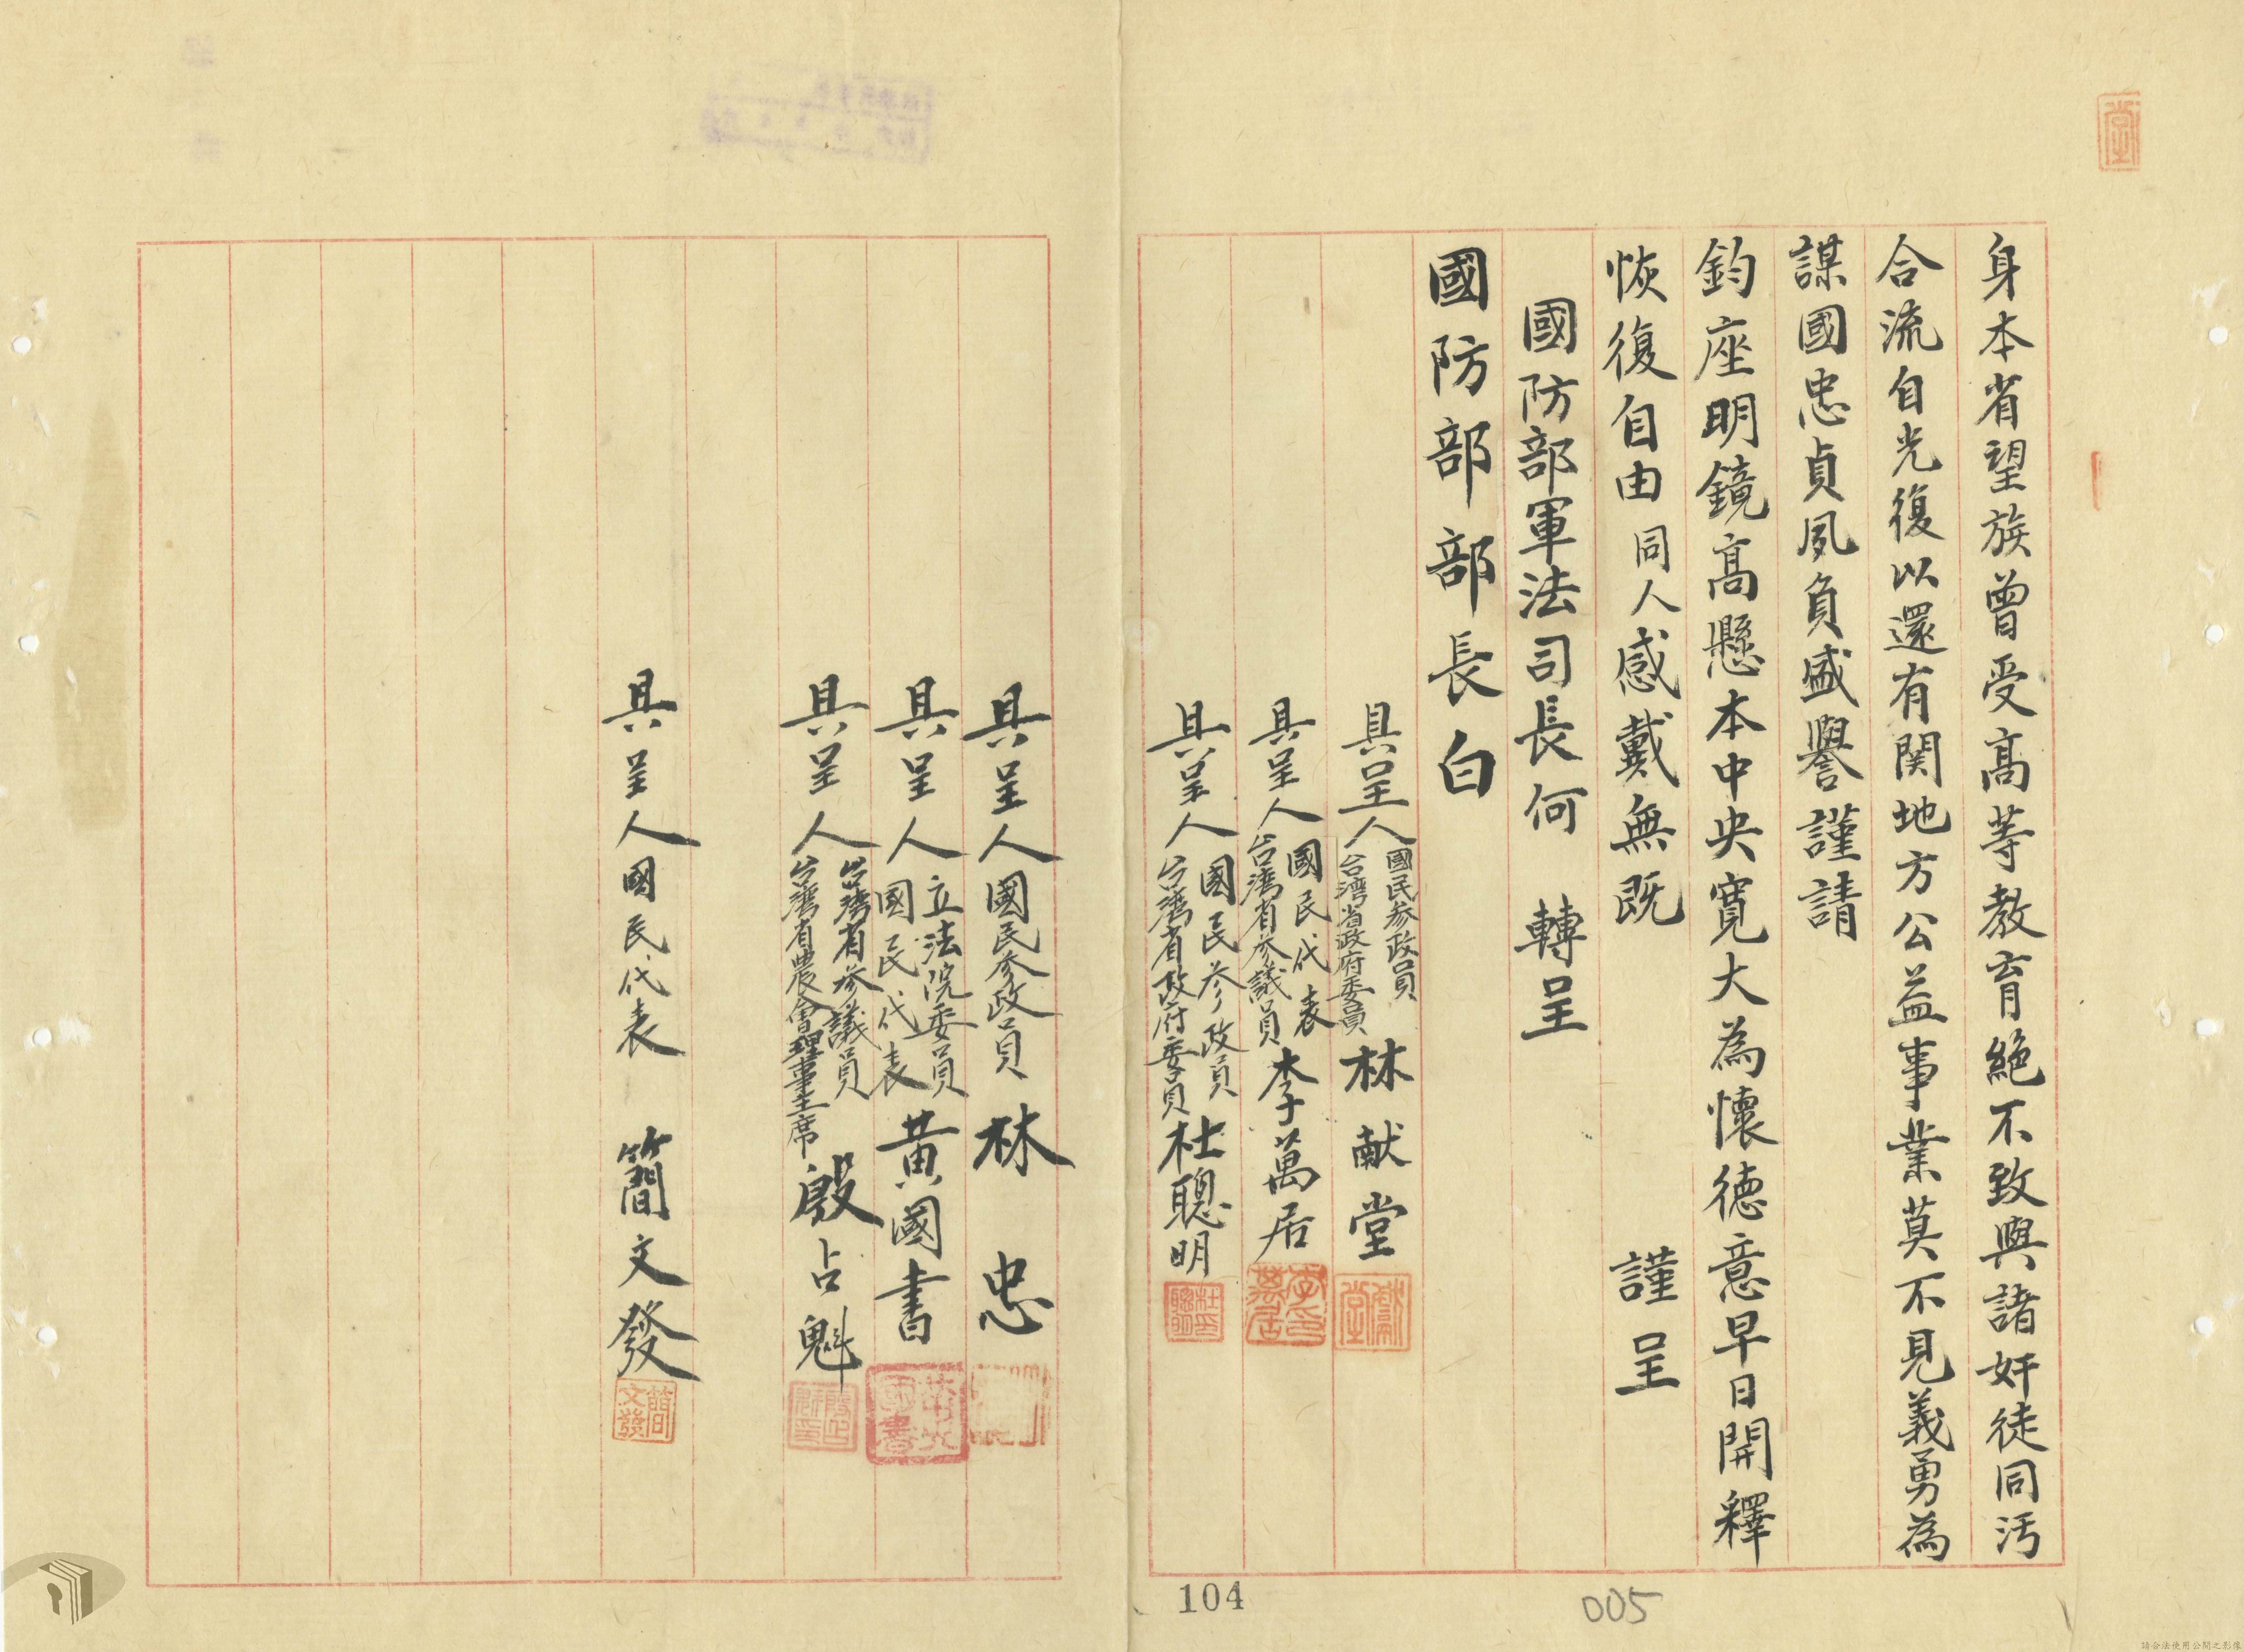 身本省望族曾受高等教育絕不致與諸奸徒同汚
合流自光復以還有関地方公益事業莫不見義勇為
謀國忠貞夙負盛譽謹請
鈞座明鏡高懸本中央寬大為懷德意早日開釋
恢復自由同人感戴無既 謹呈
國防部軍法司長何 轉呈
國防部部長白
具呈人 國民参政員 台湾省政府委員 林献堂
具呈人 國民代表 台湾省参議員 李萬居
具呈人 國民参政員 台湾省政府委員 杜聰明
具呈人 國民参政員 林忠
具呈人 立法院委員 國民代表 黄國書
具呈人 台湾省参議員 台湾省農會理事主席 殷占魁
具呈人 國民代表 簡文發
堂
獻堂
李萬居印
杜聰明印
簡文發
104
005
請合法使用公開之影像